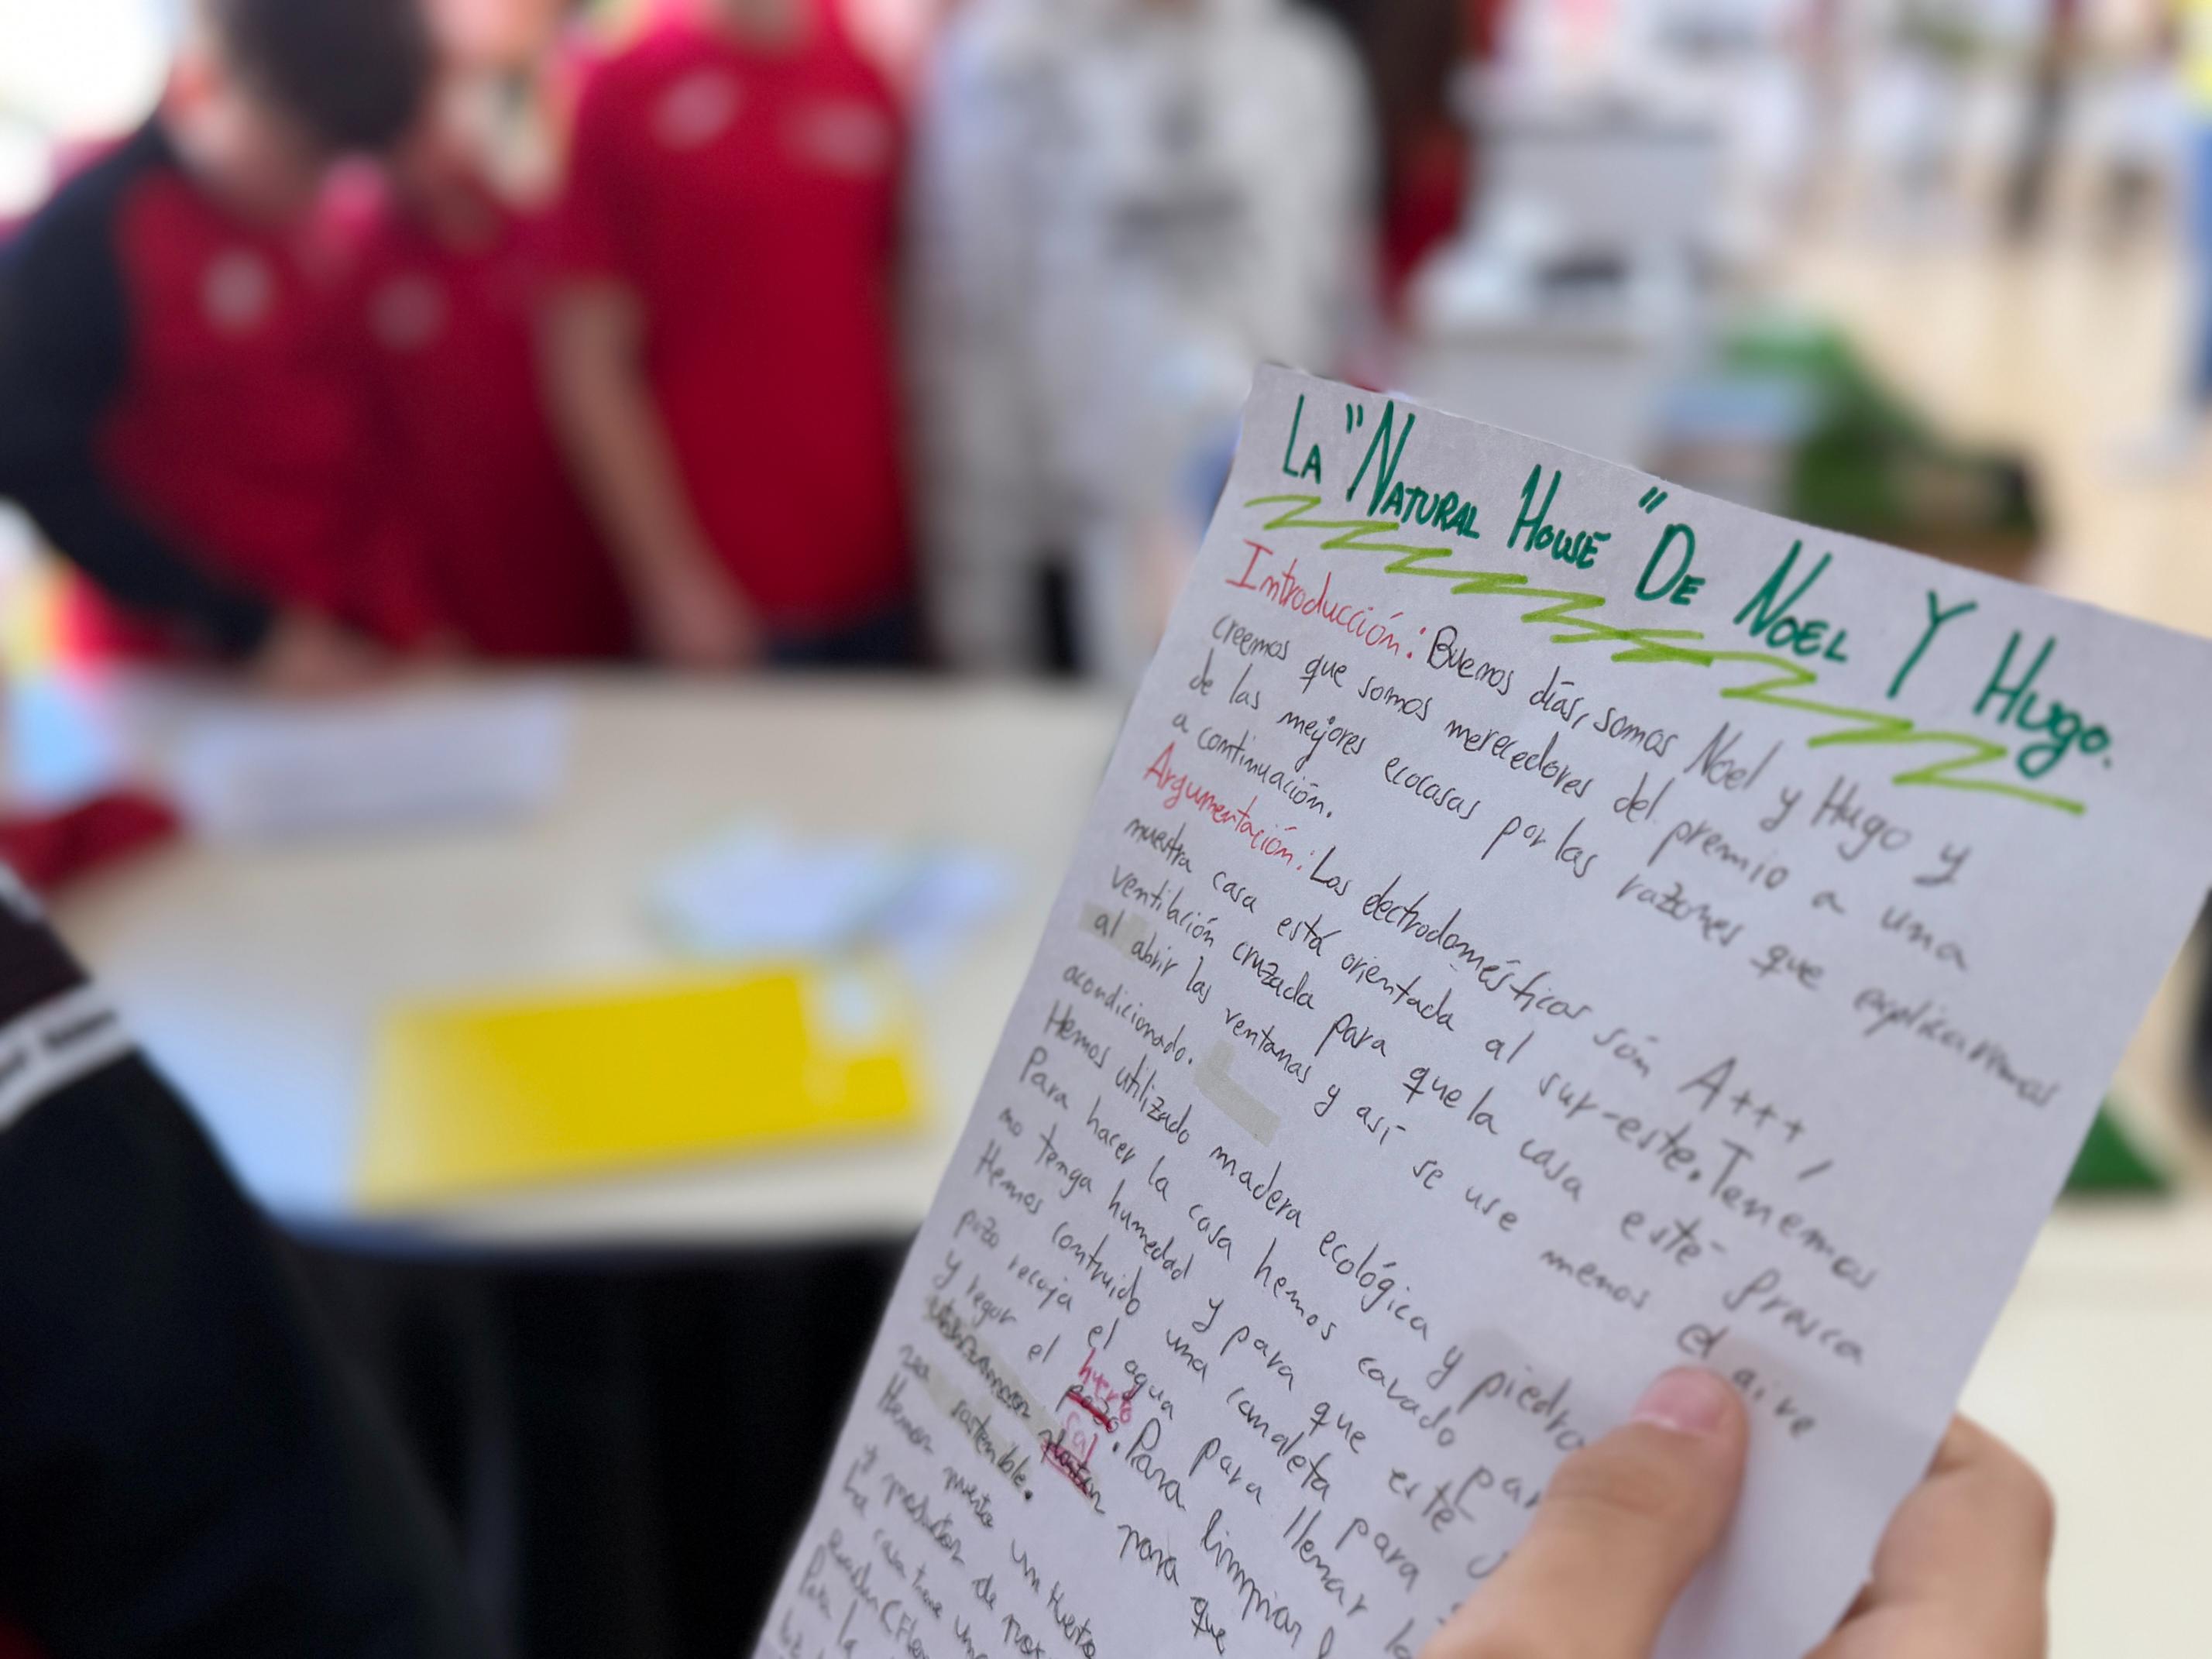 LA "NATURAL HOUSE" DE NOEL Y HUGO.
Introducción: Buenos días, somos Noel y Hugo y
creemos que somos merecedores del premio a una
de las mejores ecocasas por las razones que explicaremos
a continuación.
Argumentación: Los electrodomésticos són A+++,
nuestra casa está orientada al sur-este. Tenemos
ventilación cruzada para que la casa esté fresca
al abrir las ventanas y así se use menos el aire
acondicionado.
Hemos utilizado madera ecológica y piedra
Para hacer la casa hemos cavado par
no tenga humedad y para que esté
Hemos contruido una canaleta para
pozo recoja el agua para llenar
y regar el huerto pozo. Para limpiar
sal para que
sea sostenible.
Hemos puesto un Huerto
y productos de
La casa tiene una
Para la